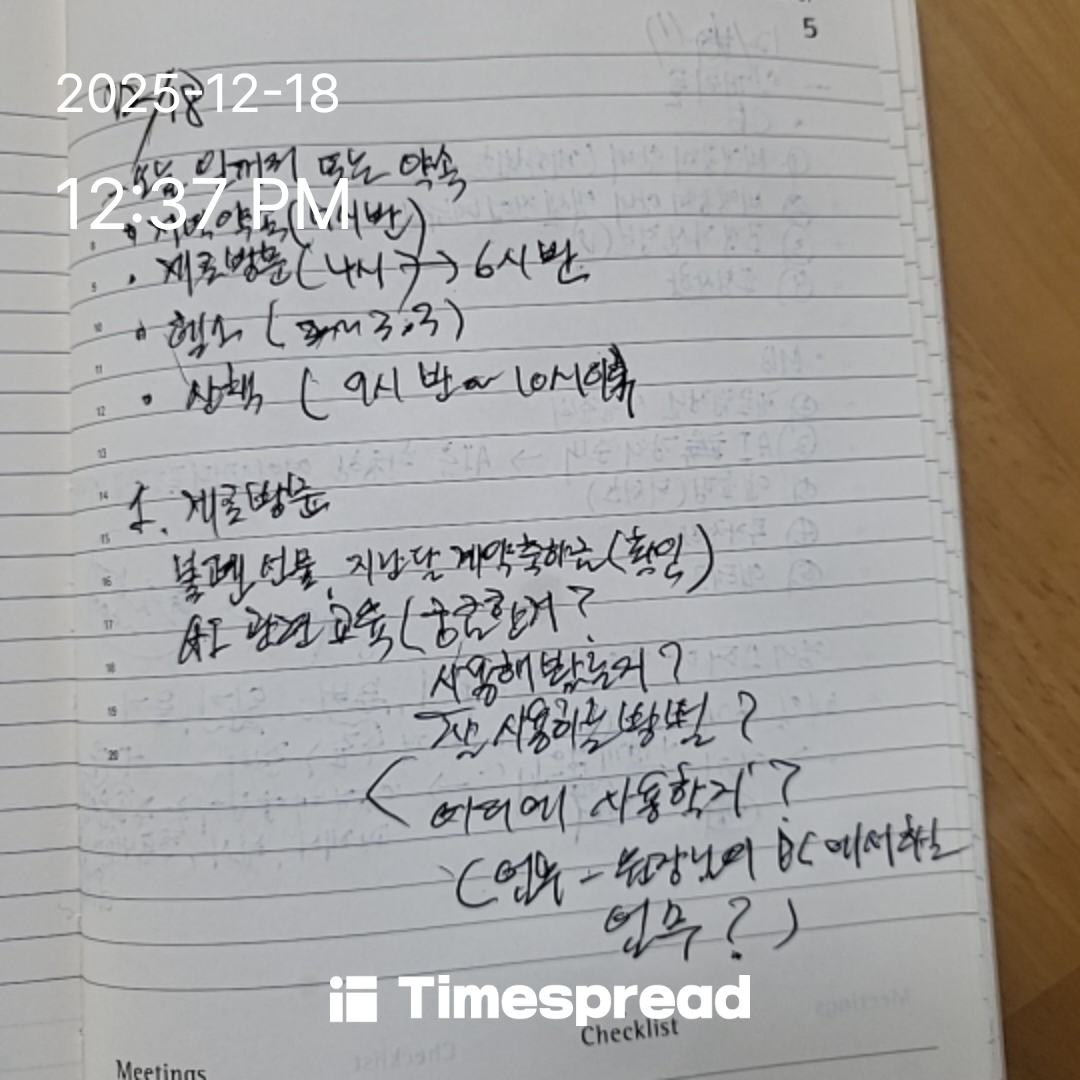 5
2025-12-18
12-18
오늘 인끼리 또는 약속
12:37 PM
8
• 저녁약속(7시반)
9 • 제로방문(4시 → 6시반
10 • 헬스 (
11
12 • 산책 ( 9시 반 ~ 10시이후
13
14 1. 제로방문
15
16 볼펜선물, 지난달 계약축하금(확인)
17 AI 관련 교육(궁금한거?
18 사용해봤는지?
19 잘 사용하는 방법?
20
어디에 사용할지?
(업무 - 원장님의 PC에서 하는
업무?)
Timespread
Checklist
Meetings